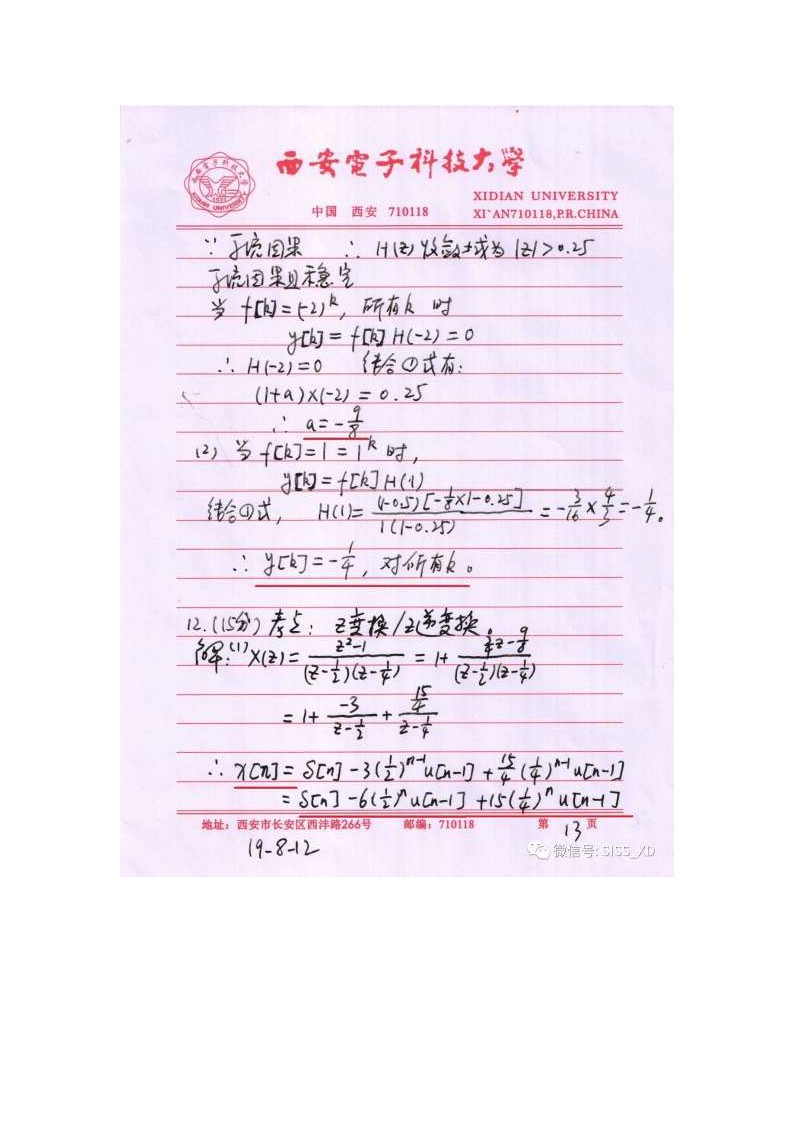 西安電子科技大學
XIDIAN UNIVERSITY
中国 西安 710118 XI`AN710118,P.R.CHINA
∵ 系统因果 ∴ H(z) 收敛域为 |z|>0.25
系统因果且稳定
当 f[k]=(-2)^k, 所有k 时
y[k] = f[k] H(-2) = 0
∴ H(-2)=0 结合①式有:
(1+a)×(-2) = 0.25
∴ a = -9/8
(2) 当 f[k]=1=1^k 时,
y[k] = f[k] H(1)
结合①式, H(1) = (1-0.5)[-1/8×1-0.25] / 1(1-0.25) = -3/16 × 4/3 = -1/4。
∴ y[k] = -1/4, 对所有k。
12.(15分) 考点: Z变换/Z逆变换
解:(1) X(z) = (z²-1)/((z-1/2)(z-1/4)) = 1+ (3/4z-9/8)/((z-1/2)(z-1/4))
= 1+ -3/(z-1/2) + (15/4)/(z-1/4)
∴ x[n] = δ[n] -3(1/2)^(n-1) u[n-1] + 15/4 (1/4)^(n-1) u[n-1]
= δ[n] -6(1/2)^n u[n-1] +15(1/4)^n u[n-1]
地址: 西安市长安区西沣路266号 邮编: 710118 第 13 页
19-8-12
微信号: SISS_XD